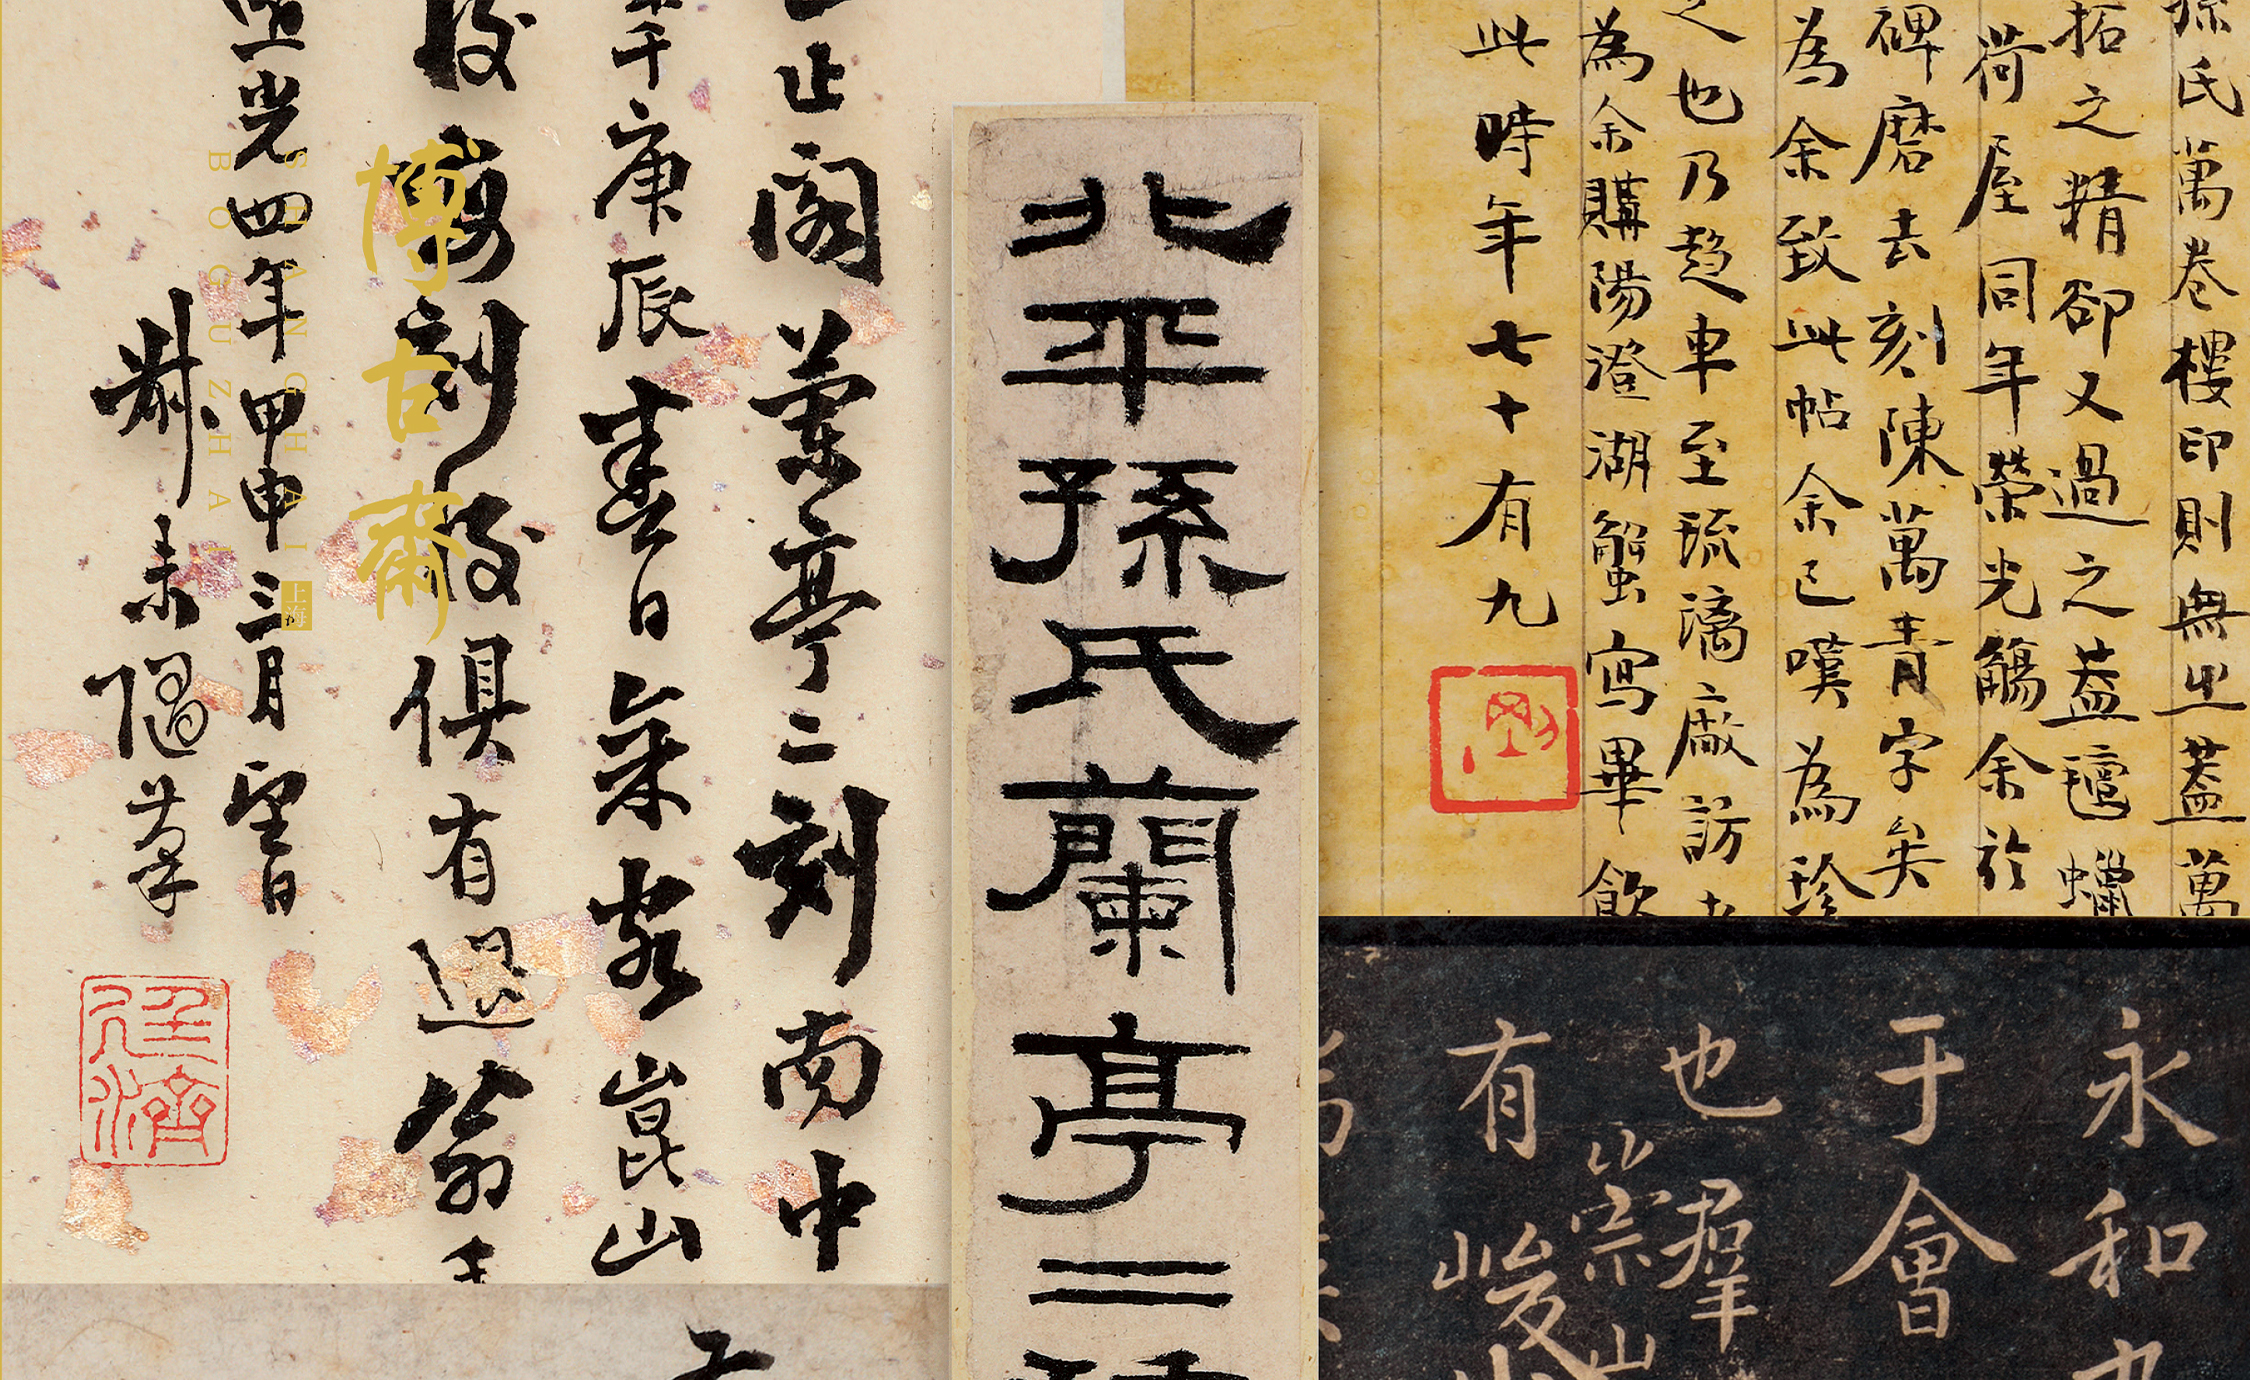 孫氏萬卷樓印則無之蓋萬
拓之精卻又過之蓋氊蠟
荷屋同年榮光觴余於
碑磨去刻陳萬青字矣
為余致此帖余已嘆為珍
之也乃趋車至琉璃廠訪
為余購陽澄湖蟹寫畢飲
此時年七十有九
永和九
于會
也羣
崇山
有峻
北平孫氏蘭亭二
止閣蘭亭二刻南中
庚辰春日客崑山
刻後俱有過翁
光四年甲申三月望日
叔未筆
廷濟
博古齋
SHANGHAI
上海
BOGUZHAI